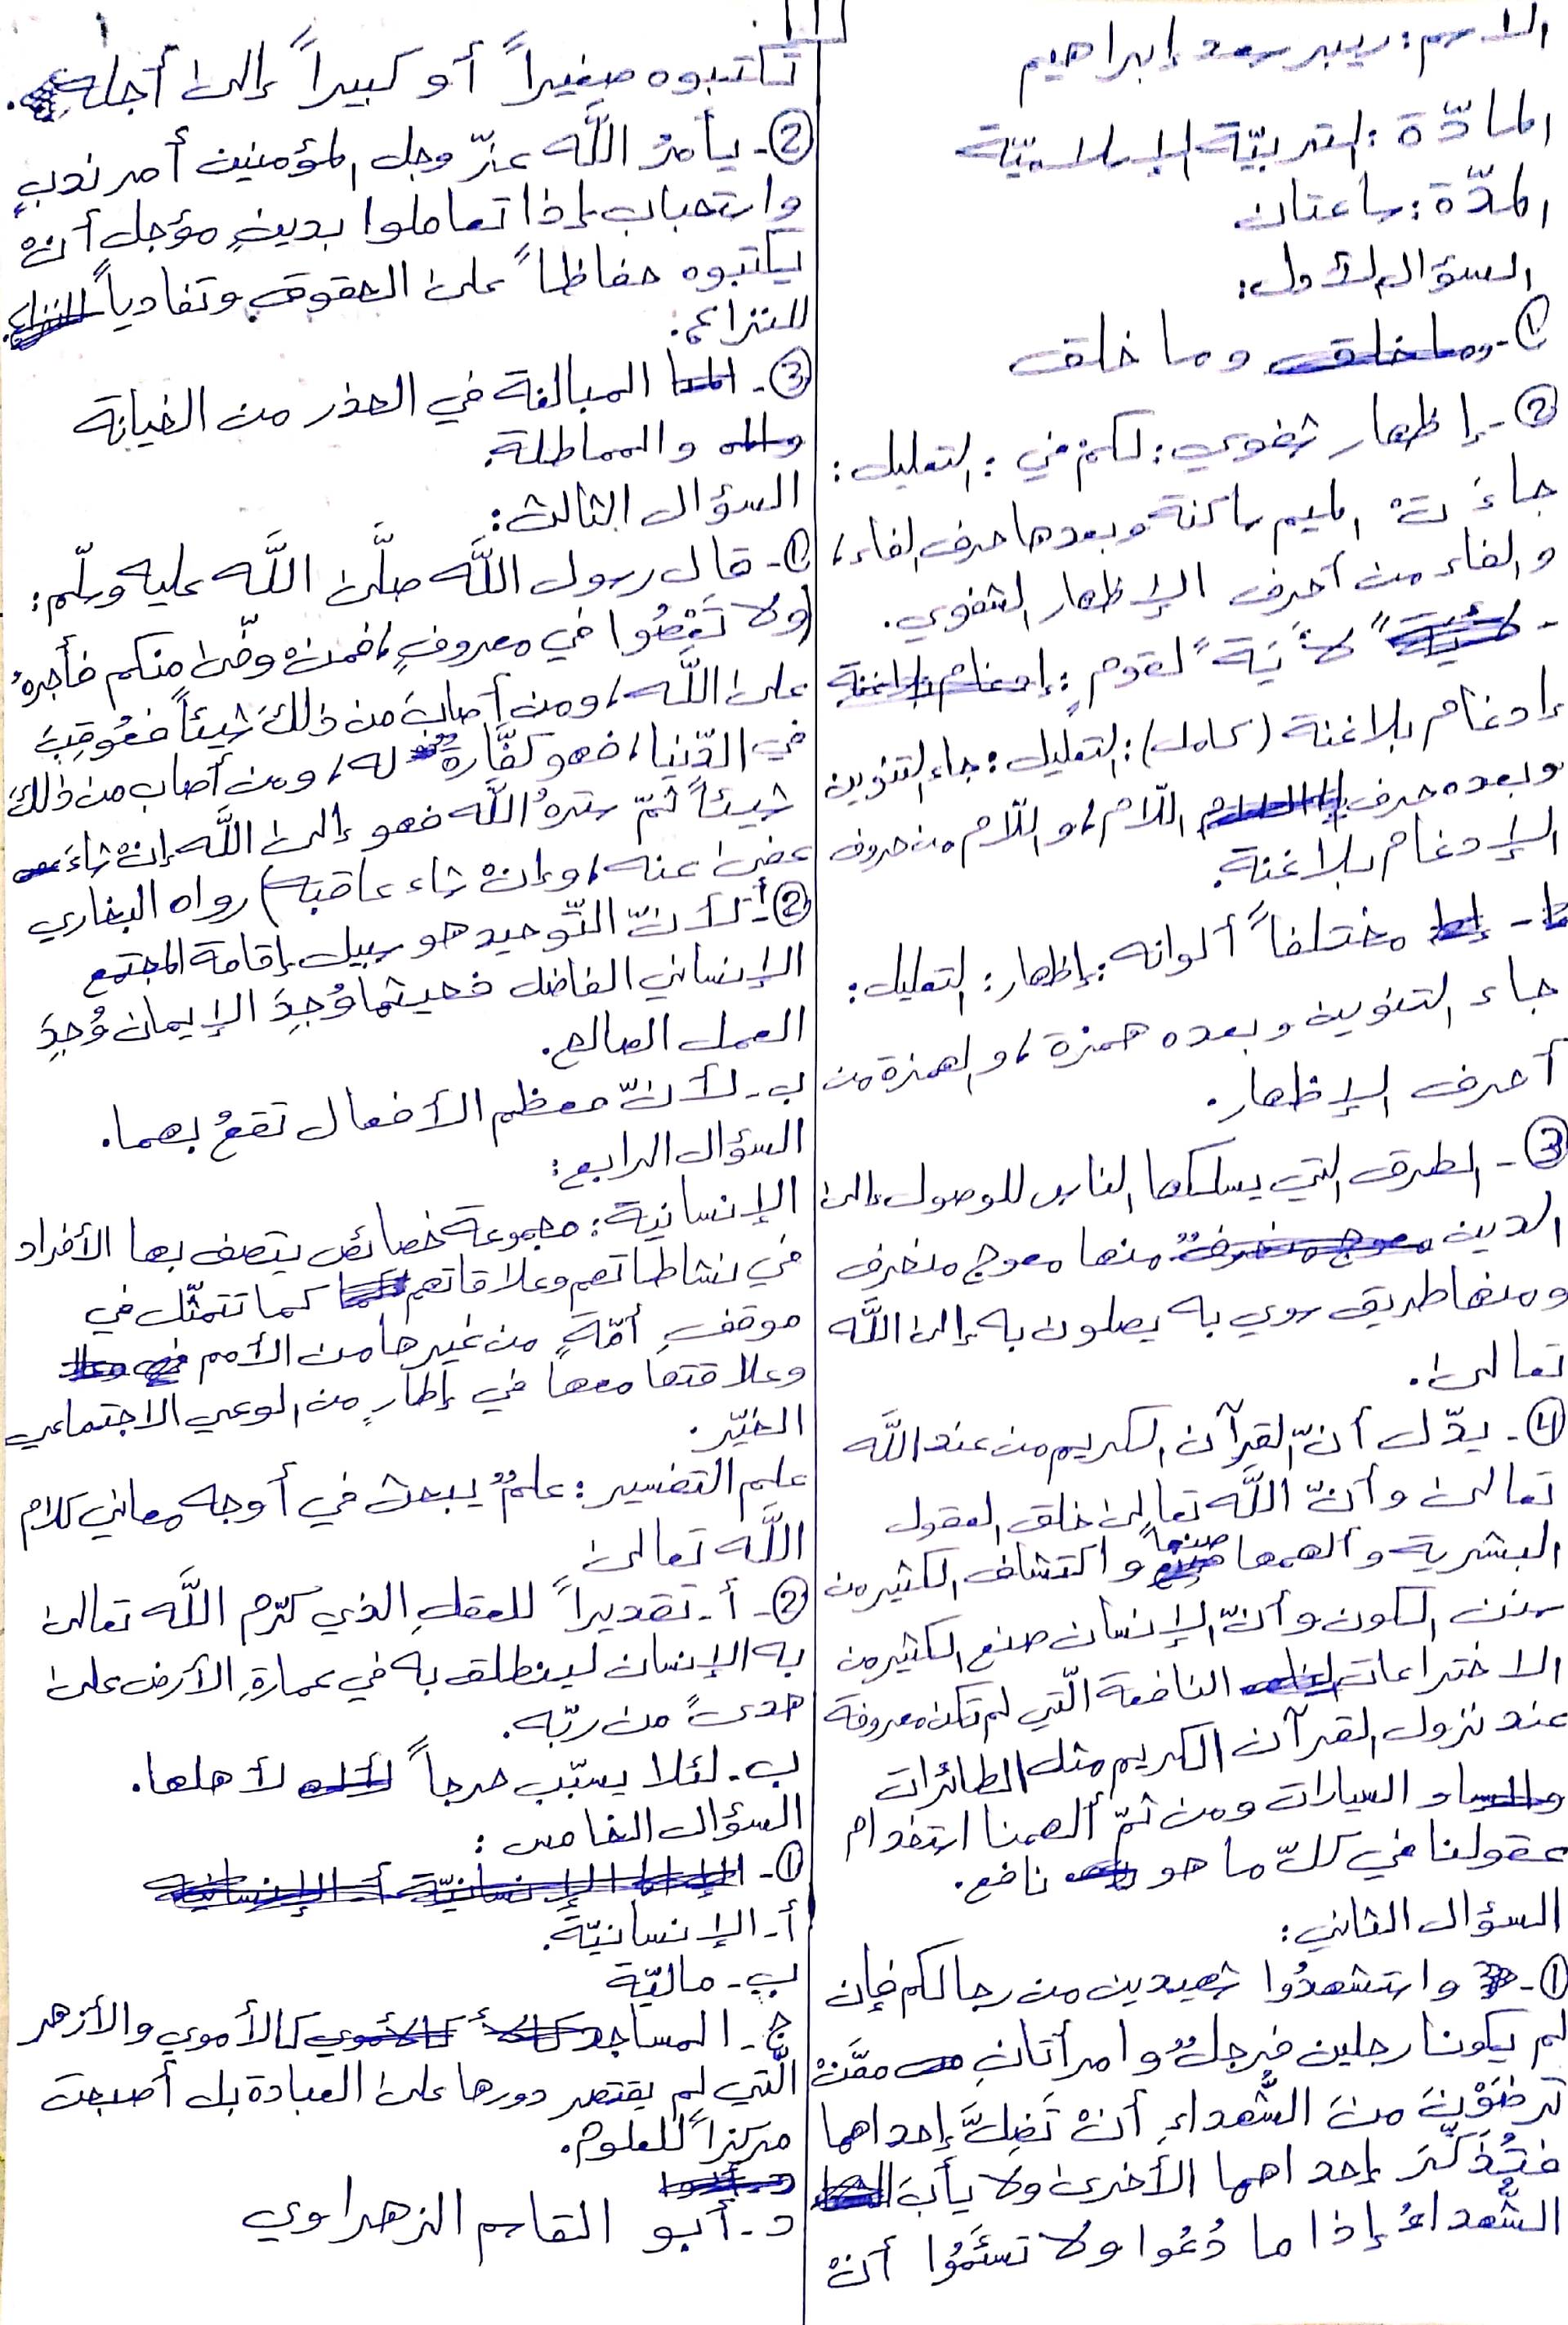 الاسم: بيبر سعد إبراهيم
المادّة: التربيّة الإسلاميّة
المدّة: ساعتان
السؤال الأول:
①- وما خلق
②- إظهار شفوي: لكم في: التعليل:
جاءَتْ الميم ساكنة وبعدها حرف الفاء،
والفاء من أحرف الإظهار الشفوي.
- لآيَةً لقوم:
إدغام بلاغنة (كامل): التعليل: جاء التنوين
وبعده حرف اللّام، واللّام من حروف
الإدغام بلاغنة.
- مختلفاً ألوانه: إظهار: التعليل:
جاء التنوين وبعده همزة، والهمزة من
أحرف الإظهار.
③- الطرق التي يسلكها الناس للوصول إلى
الدين منها معوج منحرف
ومنها طريق سوي به يصلون به إلى اللَّه
تعالى.
④- يدّل أنّ القرآن الكريم من عند اللَّه
تعالى وأنّ اللَّه تعالى خلق العقول
البشرية وألهمها صنعاً واكتشاف الكثير من
سنن الكون وأنّ الإنسان صنع الكثير من
الاختراعات النافعة الّتي لم تكن معروفة
عند نزول القرآن الكريم مثل الطائرات
و السيارات ومن ثمّ ألهمنا استخدام
عقولنا في كلّ ما هو نافع.
السؤال الثاني:
①- واستشهدُوا شهيدين من رجالكم فإن
لم يكونا رجلين فرجلٌ وامرأتانِ ممَّنْ
ترضَوْنَ منَ الشُّهداءِ أنْ تَضِلَّ إحداهما
فتُذَكِّرَ إحداهما الأخرى ولا يأبَ
الشُّهداءُ إذا ما دُعُوا ولا تسئَمُوا أنْ
تكتبوه صغيراً أو كبيراً إلى أجله.
②- يأمرُ اللَّه عزّ وجل المؤمنين أمر ندبٍ
واستحباب إذا تعاملوا بدينٍ مؤجل أنْ
يكتبوه حفاظاً على الحقوق وتفادياً
للنزاع.
③- المبالغة في الحذر من الخيانة
والمماطلة.
السؤال الثالث:
①- قال رسول اللَّه صلَّى اللَّه عليه وسلّم:
(ولا تَعْصُوا في معروفٍ، فمنْ وفّى منكم فأجرهُ
على اللَّه، ومن أصابَ من ذلكَ شيئاً فعُوقِبَ
في الدّنيا، فهو كفَّارةٌ له، ومن أصاب من ذلكَ
شيئاً ثمّ سترهُ اللَّه فهو إلى اللَّه إنْ شاءَ
عفى عنه، وإنْ شاء عاقبه) رواه البخاري
②- أ- لأنّ التّوحيد هو سبيل إقامة المجتمع
الإنساني الفاضل فحيثما وُجِدَ الإيمان وُجِدَ
العمل الصالح.
ب- لأنّ معظم الأفعال تقعُ بهما.
السؤال الرابع:
الإنسانية: مجموعة خصائص يتصف بها الأفراد
في نشاطاتهم وعلاقاتهم كما تتمثّل في
موقفِ أمّةٍ من غيرها من الأمم
وعلاقتها معها في إطارٍ من الوعي الاجتماعي
الخيّر.
علم التفسير: علمٌ يبحث في أوجه معاني كلام
اللَّه تعالى
②- أ- تقديراً للعقلِ الذي كرّم اللَّه تعالى
به الإنسان لينطلق به في عمارةِ الأرض على
هدىً من ربّه.
ب- لئلا يسبّب حرجاً لأهلها.
السؤال الخامس:
①-
أ- الإنسانيّة.
ب- ماليّة
ج- المساجد كالأموي والأزهر
الّتي لم يقتصر دورها على العبادة بل أصبحت
مركزاً للعلوم.
د- أبو القاسم الزهراوي